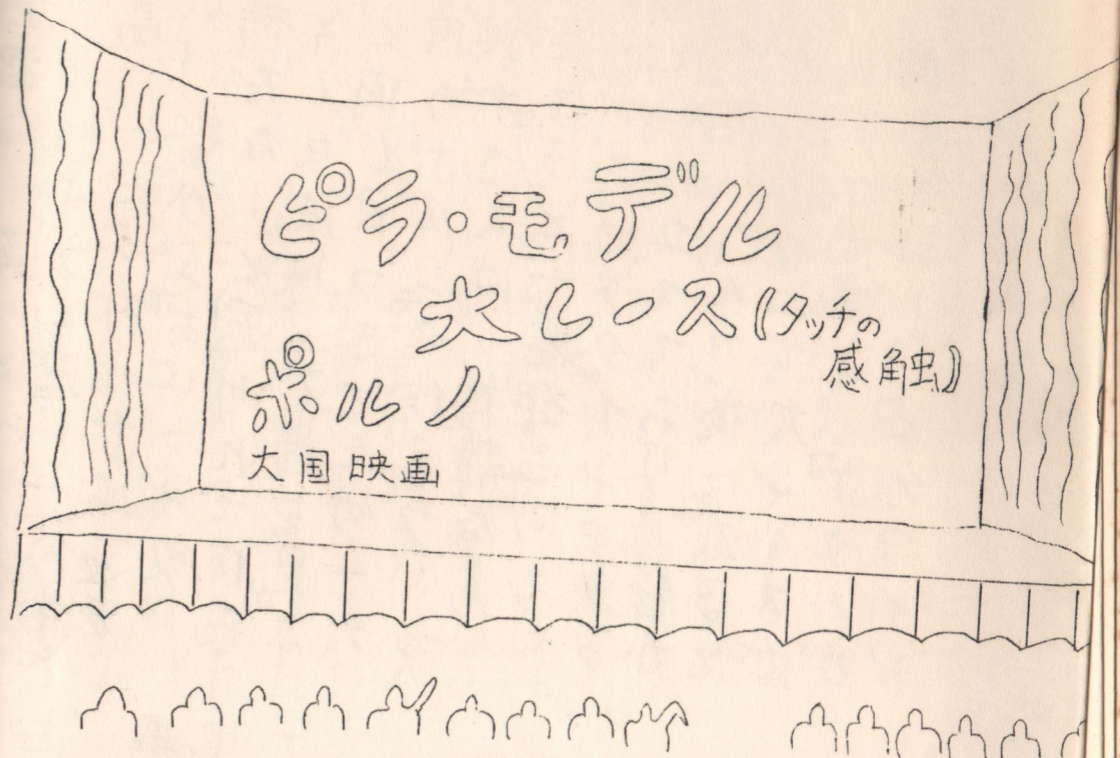 ピラ・モデル
大レース(タッチの
感触)
ポルノ
大国映画